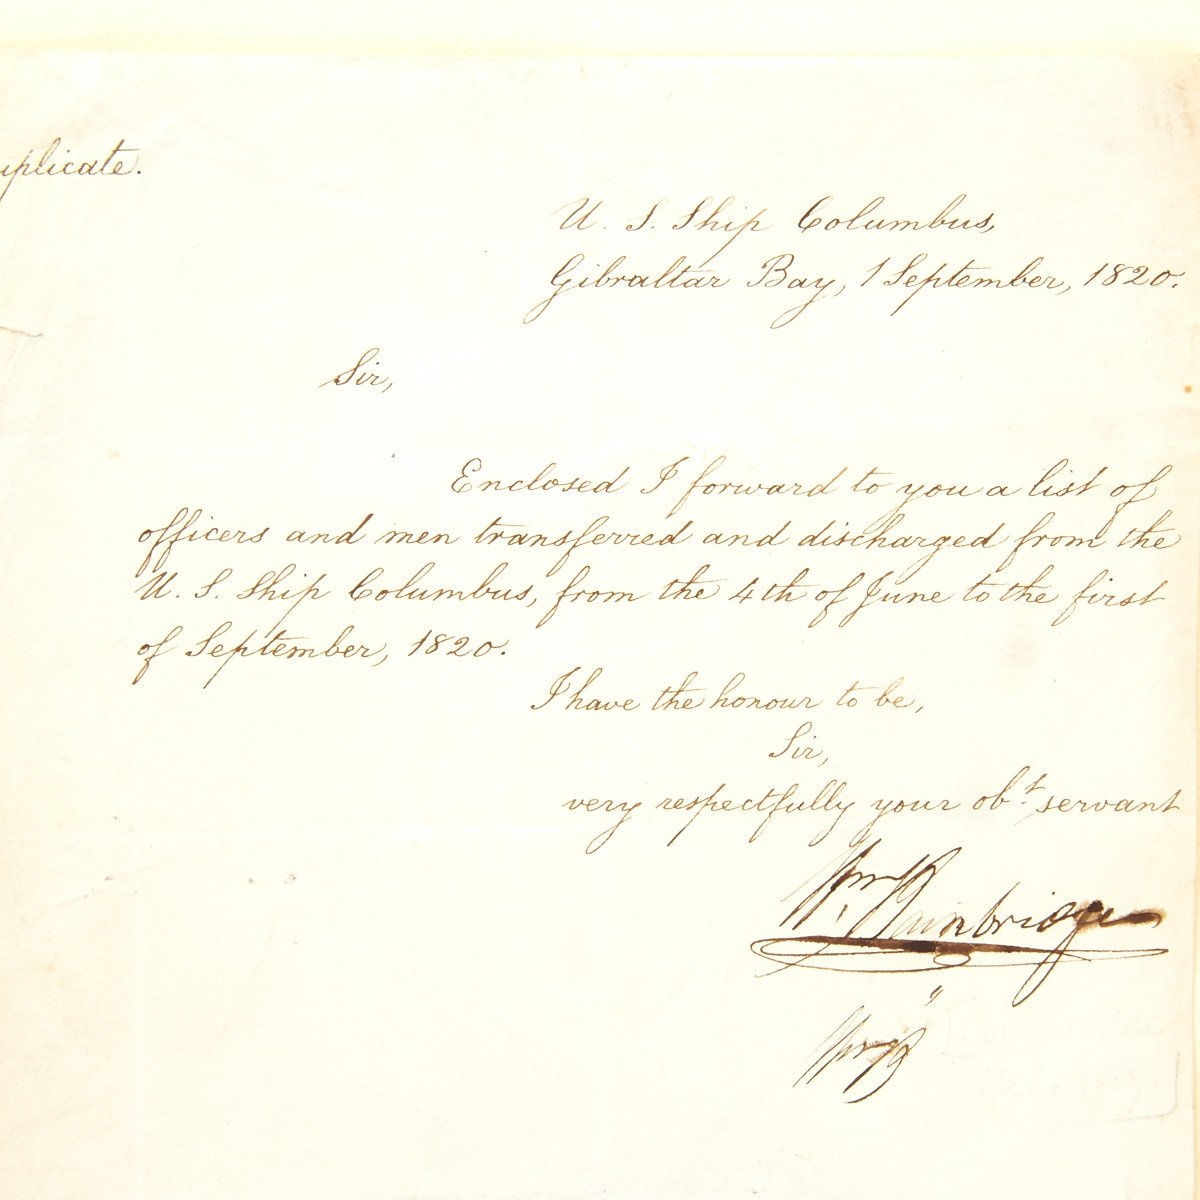 uplicate.
U. S. Ship Columbus,
Gibraltar Bay, 1 September, 1820.
Sir,
Enclosed I forward to you a list of
officers and men transferred and discharged from the
U. S. Ship Columbus, from the 4th of June to the first
of September, 1820.
I have the honour to be,
Sir,
very respectfully your obt. servant
Wm. Bainbridge
WmB
U.S. Navy.